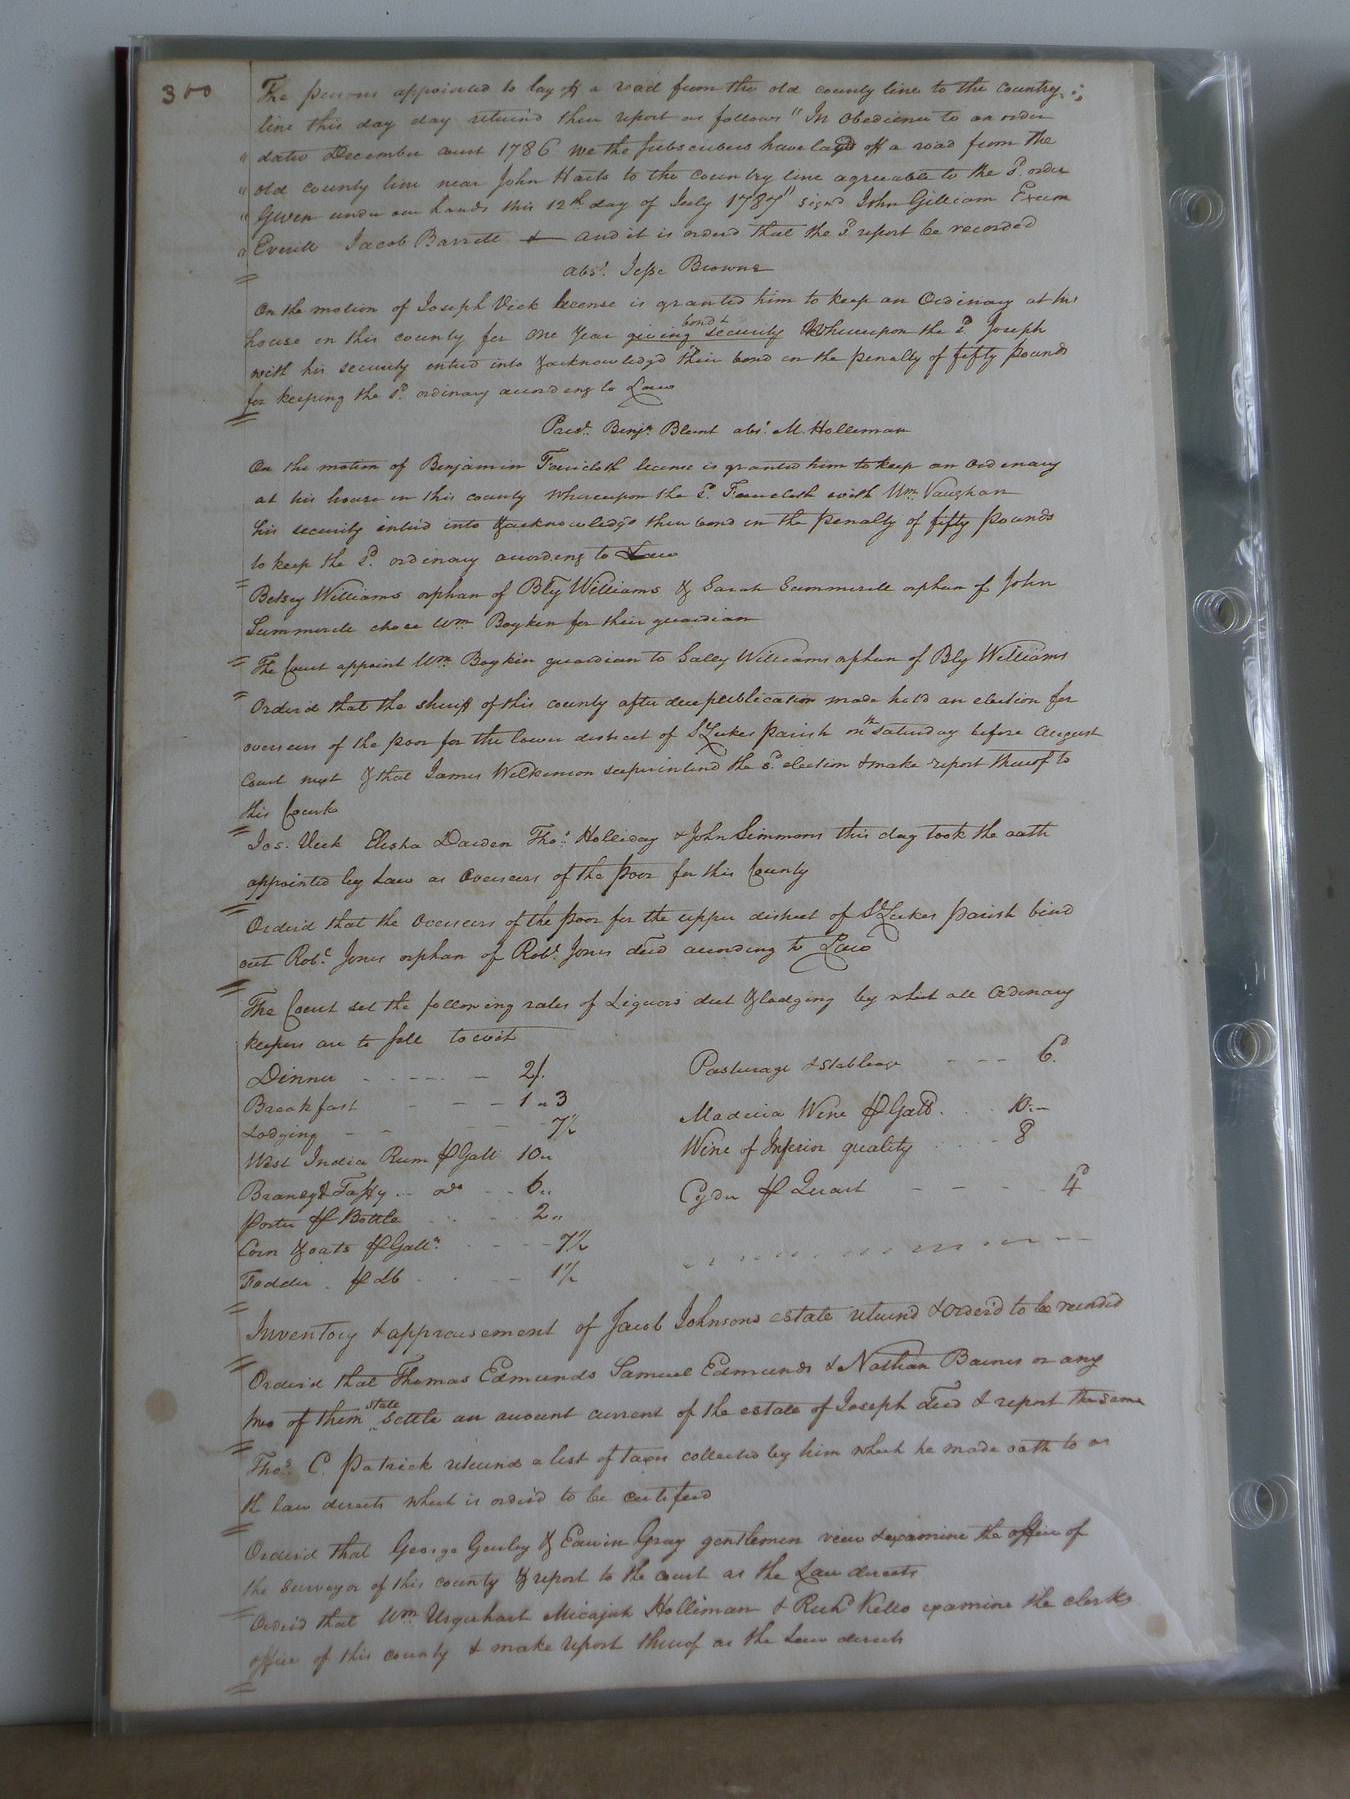 300
The persons appointed to lay off a road from the old county line to the country
line this day day returnd their report as follows "In Obedience to an order
" dated December court 1786 we the subscribers have layd off a road from the
" old county line near John Harts to the country line agreeable to the sd. order
" Given under our hands this 12th day of July 1787" signd John Gilliam Exum
" Everitt Jacob Barrett & and it is orderd that the sd report be recorded
abst. Jesse Browne
On the motion of Joseph Vick license is granted him to keep an Ordinary at his
house in this county for one Year giving bond & security Whereupon the sd Joseph
with his security enterd into & acknowledgd their bond in the penalty of fifty pounds
for keeping the sd. ordinary according to Law
Prest. Benjn. Blunt abst. M. Holleman
On the motion of Benjamin license is granted him to keep an Ordinary
at his house in this county whereupon the sd. with Wm. Vaughan
his security enterd into & acknowledgd their bond in the penalty of fifty pounds
to keep the sd. ordinary according to Law
Betsey Williams orphan of Bly Williams & Sarah Summerell orphan of John
Summerell chose Wm. Boykin for their guardian
The Court appoint Wm. Boykin guardian to Salley Williams orphan of Bly Williams
Orderd that the sheriff of this county after due publication made hold an election for
overseers of the poor for the lower district of St Lukes parish on th saturday before August
Court next & that James Wilkinson superintend the sd. election & make report thereof to
this Court
Jos. Vick Elisha Darden Thos. Holliday & John Simmons this day took the oath
appointed by Law as Overseers of the poor for this County
Orderd that the Overseers of the poor for the upper district of St Lukes parish bind
out Robt. Jones orphan of Robt. Jones decd according to Law
The Court set the following rates of Liquors diet & lodging by which all Ordinary
keepers are to sell to wit
Dinner - - - - 2/.
Breakfast - - - 1 " 3
Lodging - - - - 7½
West India Rum ⅌ Gall 10 "
Brandy & Taffy .. do .. 6 "
Porter ⅌ Bottle . . . 2 "
Corn & oats ⅌ Galln. - - - 7½
Fodder . ⅌ Lb . . - 1½
Pasturage & Stableage - - - 6d.
Madeira Wine ⅌ Galln. . . 10 " -
Wine of Inferior quality . . . 8
Cyder ⅌ Quart - - - - 4d
Inventory & appraisement of Jacob Johnsons estate returnd & orderd to be recorded
Orderd that Thomas Edmunds Samuel Edmunds & Nathan Barnes or any
two of them state settle an account current of the estate of Joseph decd & report the same
Thos. C. Patrick returns a list of taxes collected by him which he made oath to as
th law directs which is orderd to be certified
Orderd that George Gurley & Edwin Gray gentlemen view & examine the office of
the surveyor of this county & report to the court as the Law directs
Orderd that Wm Urquhart Micajah Holliman & Richd Kello examine the clerks
office of this county & make report thereof as the Law directs